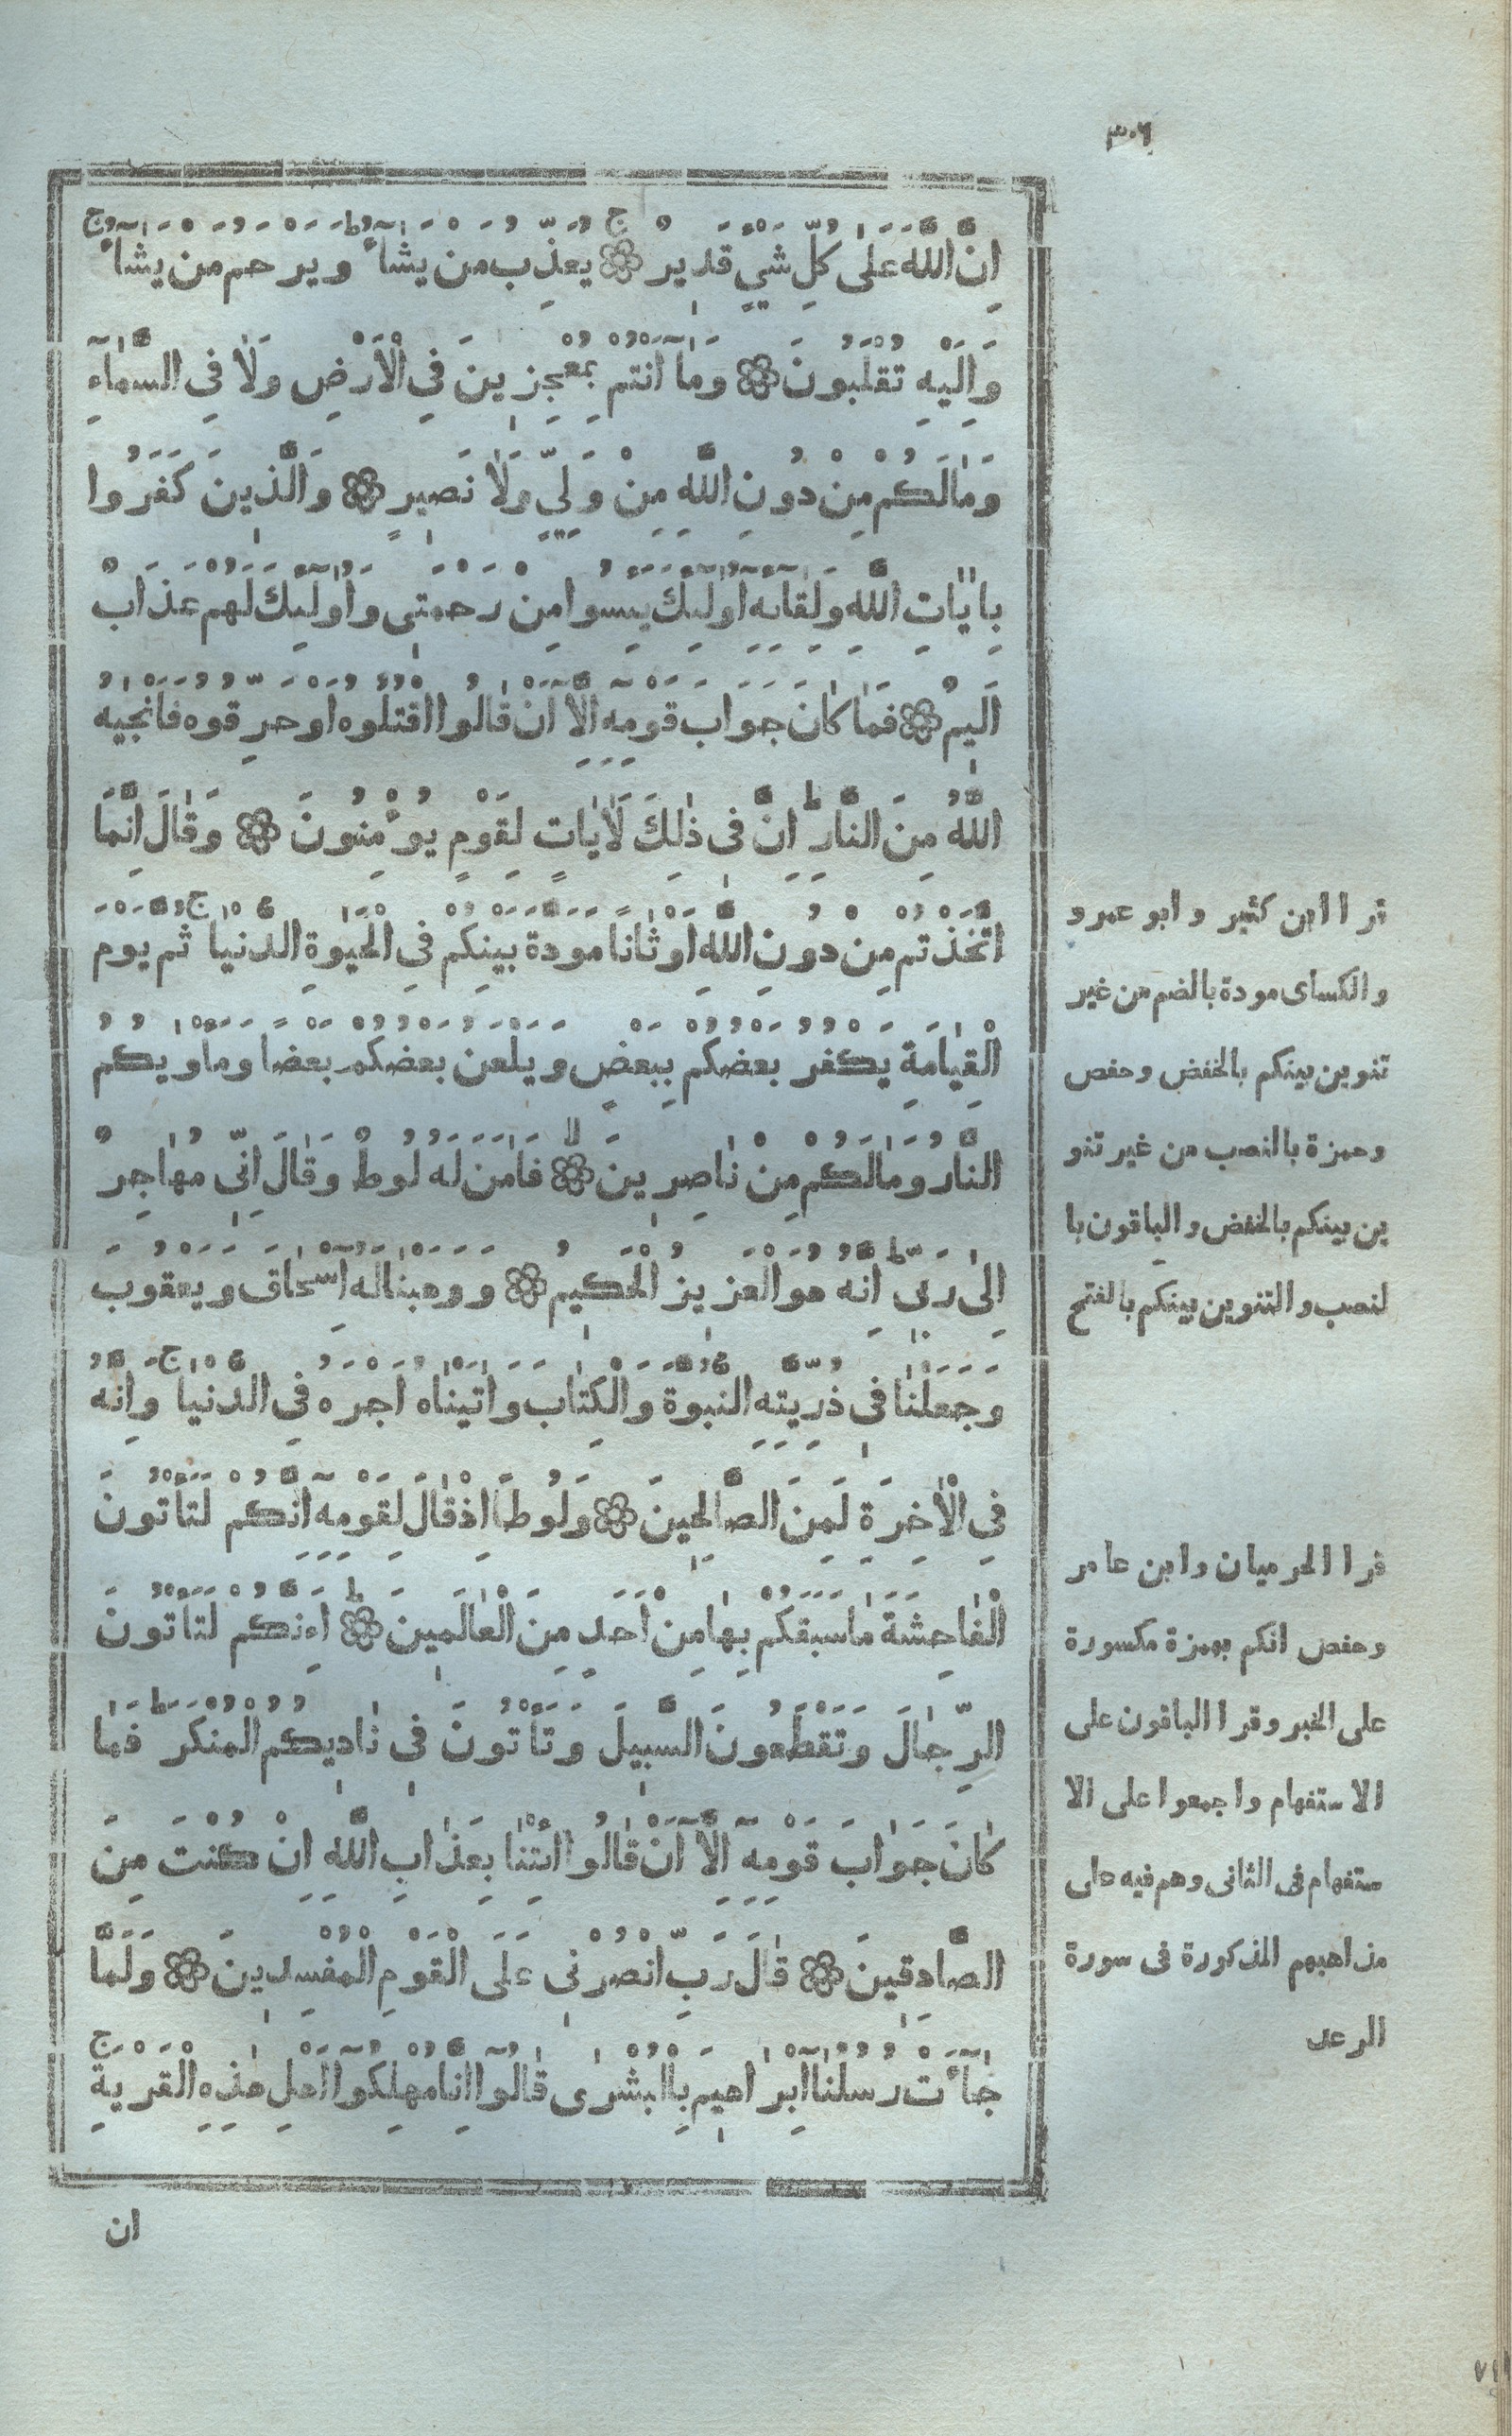 ٣٠٦
اِنَّ اللّٰهَ عَلٰى كُلِّ شَيْءٍ قَدِيرٌ ۝ ج يُعَذِّبُ مَنْ يَشَآءُ ط وَيَرْحَمُ مَنْ يَشَآءُ ج
وَاِلَيْهِ تُقْلَبُونَ ۝ وَمَآ اَنْتُمْ بِمُعْجِزِينَ فِي الْاَرْضِ وَلَا فِي السَّمَآءِ
وَمَا لَكُمْ مِنْ دُونِ اللّٰهِ مِنْ وَلِيٍّ وَلَا نَصِيرٍ ۝ وَالَّذِينَ كَفَرُوا
بِاٰيَاتِ اللّٰهِ وَلِقَآئِهٖٓ اُولٰٓئِكَ يَئِسُوا مِنْ رَحْمَتِي وَاُولٰٓئِكَ لَهُمْ عَذَابٌ
اَلِيمٌ ۝ فَمَا كَانَ جَوَابَ قَوْمِهٖٓ اِلَّآ اَنْ قَالُوا اقْتُلُوهُ اَوْ حَرِّقُوهُ فَاَنْجٰيهُ
اللّٰهُ مِنَ النَّارِ ط اِنَّ فِي ذٰلِكَ لَاٰيَاتٍ لِقَوْمٍ يُؤْمِنُونَ ۝ وَقَالَ اِنَّمَا
اتَّخَذْتُمْ مِنْ دُونِ اللّٰهِ اَوْثَانًا مَوَدَّةَ بَيْنِكُمْ فِي الْحَيٰوةِ الدُّنْيَا ج ثُمَّ يَوْمَ
الْقِيَامَةِ يَكْفُرُ بَعْضُكُمْ بِبَعْضٍ وَيَلْعَنُ بَعْضُكُمْ بَعْضًا وَمَأْوٰيكُمُ
النَّارُ وَمَا لَكُمْ مِنْ نَاصِرِينَ ۝ لا فَاٰمَنَ لَهُ لُوطٌ وَقَالَ اِنِّي مُهَاجِرٌ
اِلٰى رَبِّي ط اِنَّهُ هُوَ الْعَزِيزُ الْحَكِيمُ ۝ وَوَهَبْنَا لَهُٓ اِسْحَاقَ وَيَعْقُوبَ
وَجَعَلْنَا فِي ذُرِّيَّتِهِ النُّبُوَّةَ وَالْكِتَابَ وَاٰتَيْنَاهُ اَجْرَهُ فِي الدُّنْيَا ج وَاِنَّهُ
فِي الْاٰخِرَةِ لَمِنَ الصَّالِحِينَ ۝ وَلُوطًا اِذْ قَالَ لِقَوْمِهٖٓ اِنَّكُمْ لَتَأْتُونَ
الْفَاحِشَةَ مَا سَبَقَكُمْ بِهَا مِنْ اَحَدٍ مِنَ الْعَالَمِينَ ۝ ط اَءِنَّكُمْ لَتَأْتُونَ
الرِّجَالَ وَتَقْطَعُونَ السَّبِيلَ وَتَأْتُونَ فِي نَادِيكُمُ الْمُنْكَرَ ط فَمَا
كَانَ جَوَابَ قَوْمِهٖٓ اِلَّآ اَنْ قَالُوا ائْتِنَا بِعَذَابِ اللّٰهِ اِنْ كُنْتَ مِنَ
الصَّادِقِينَ ۝ قَالَ رَبِّ انْصُرْنِي عَلَى الْقَوْمِ الْمُفْسِدِينَ ۝ وَلَمَّا
جَآءَتْ رُسُلُنَآ اِبْرَاهِيمَ بِالْبُشْرٰى قَالُوٓا اِنَّا مُهْلِكُوٓا اَهْلِ هٰذِهِ الْقَرْيَةِ ج
ان
قرا ابن كثير وابو عمرو
والكساى مودة بالضم من غير
تنوين بينكم بالخفض وحفص
وحمزة بالنصب من غير تنو
ين بينكم بالخفض والباقون با
لنصب والتنوين بينكم بالفتح
قرا الحرميان وابن عامر
وحفص انكم بهمزة مكسورة
على الخبر وقرا الباقون على
الاستفهام واجمعوا على الا
ستفهام فى الثانى وهم فيه على
مذاهبهم المذكورة فى سورة
الرعد